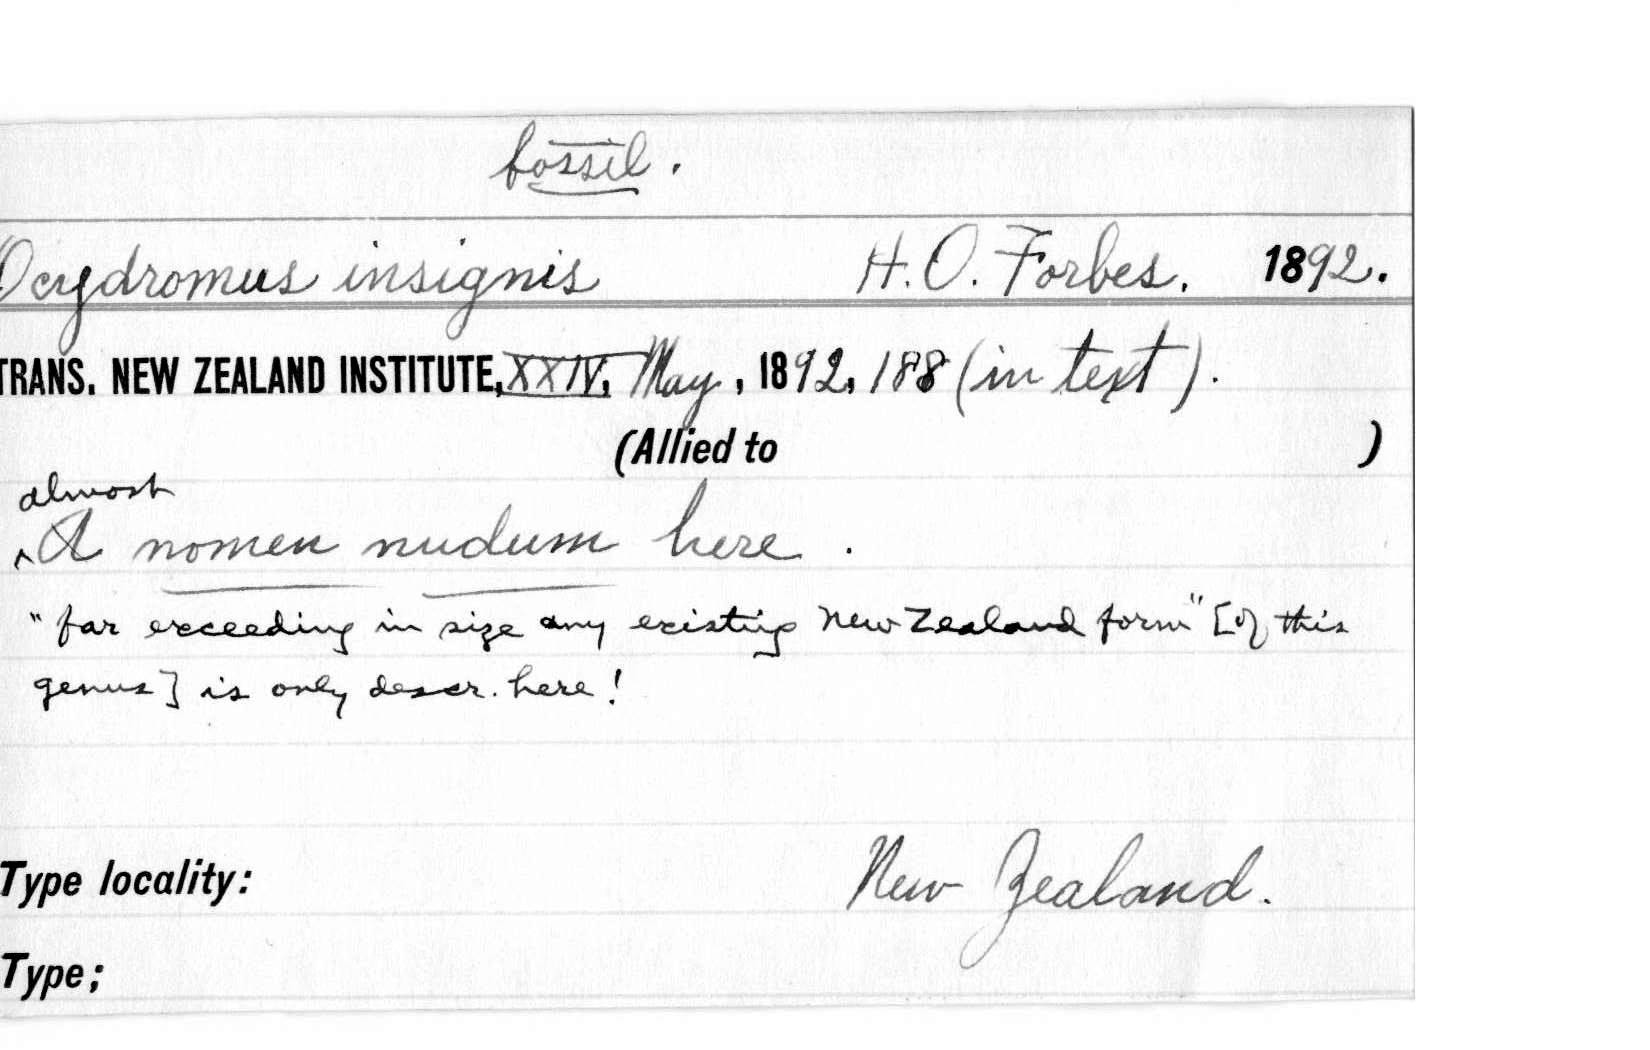 fossil.
Ocydromus insignis H. O. Forbes. 1892.
TRANS. NEW ZEALAND INSTITUTE, XXIV, May, 1892, 188 (in text).
(Allied to )
almost
^A nomen nudum here.
"far exceeding in size any existing New Zealand form" [of this
genus] is only descr. here!
Type locality: New Zealand.
Type;